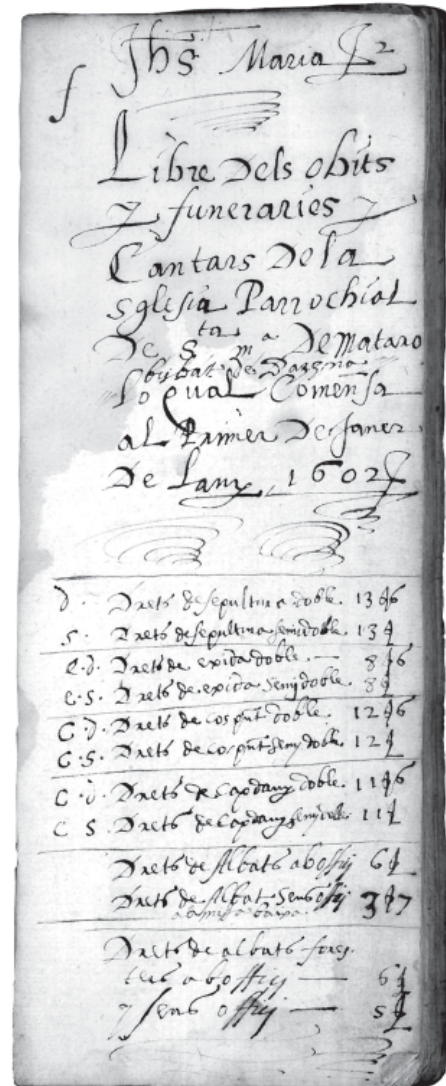 Jhs Maria
Libre Dels obits
y funeraries y
Cantars De la
sglesia Parrochial
De Sta ma De Mataro
bisbat de Barzna
Lo qual Comensa
al Primer De Janer
De Lany 1602
d. Drets de sepultura doble. 13 ſ 6
s. Drets de sepultura semidoble. 13 ſ
e.d. Drets de exida doble. — 8 ſ 6
e.s. Drets de exida semydoble. 8 ſ
C.d. Drets de cos pnt doble. 12 ſ 6
C.S. Drets de cos pnt semydoble. 12 ſ
C.d. Drets de Capdany doble. 11 ſ 6
C S. Drets de Capdany semydoble. 11 ſ
Drets de Albats ab offij 6 ſ
Drets de Albat sens offij 3 ſ 7
Drets de albats fores
ters ab offij — 6 ſ
y sens offij — 5 ſ